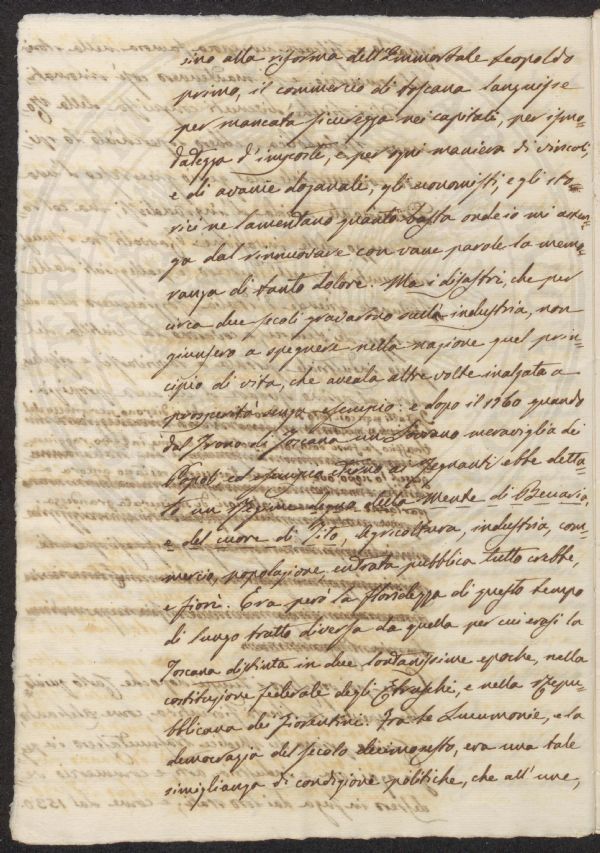 sino alla riforma dell'Immortale Leopoldo
primo, il commercio di Toscana languisse
per mancata sicurezza nei capitali, per ismo-
datezza d'imposte, e per ogni maniera di vincoli,
e di avanie doganali, gli economisti, e gli sto-
rici ne lamentano quanto basta onde io mi asten-
ga dal rinnuovare con vane parole la memo-
ranza di tanto dolore. Ma i disastri, che per
circa due secoli gravarono sulla industria, non
giunsero a spegnere nella nazione quel prin-
cipio di vita, che aveala altre volte inalzata a
prosperità senza esempio: e dopo il 1760 quando
dal Trono di Toscana un Sovrano meraviglia dei
Popoli ed esempio eterno ai Regnanti ebbe detta-
to un Regime degno della Mente di Beccaria,
e del cuore di Tito, Agricoltura, industria, com-
mercio, popolazione, entrata pubblica tutto crebbe,
e fiorì. Era però la floridezza di questo tempo
di lungo tratto diversa da quella per cui erasi la
Toscana distinta in due lontanissime epoche, nella
costituzione federale degli Etruschi, e nella Repu-
bblicana dei Fiorentini. Tra le Lucumonie, e la
democrazia del secolo decimosesto, era una tale
simiglianza di condizione politiche, che all'une,